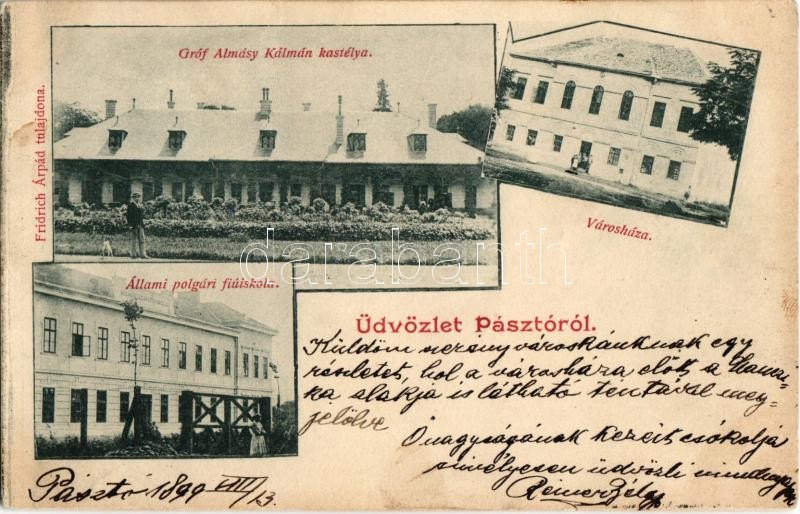 Gróf Almásy Kálmán kastélya.
Fridrich Árpád tulajdona.
Városháza.
Állami polgári fiúiskola.
darabanth
Üdvözlet Pásztóról.
Küldöm szerény városkánknak egy
részletét, hol a városháza előtt a
ka alakja is látható tentával meg
jelölve
Őnagyságának kezeit csókolja
szívélyesen üdvözli
Pásztó 1899 VIII/13.